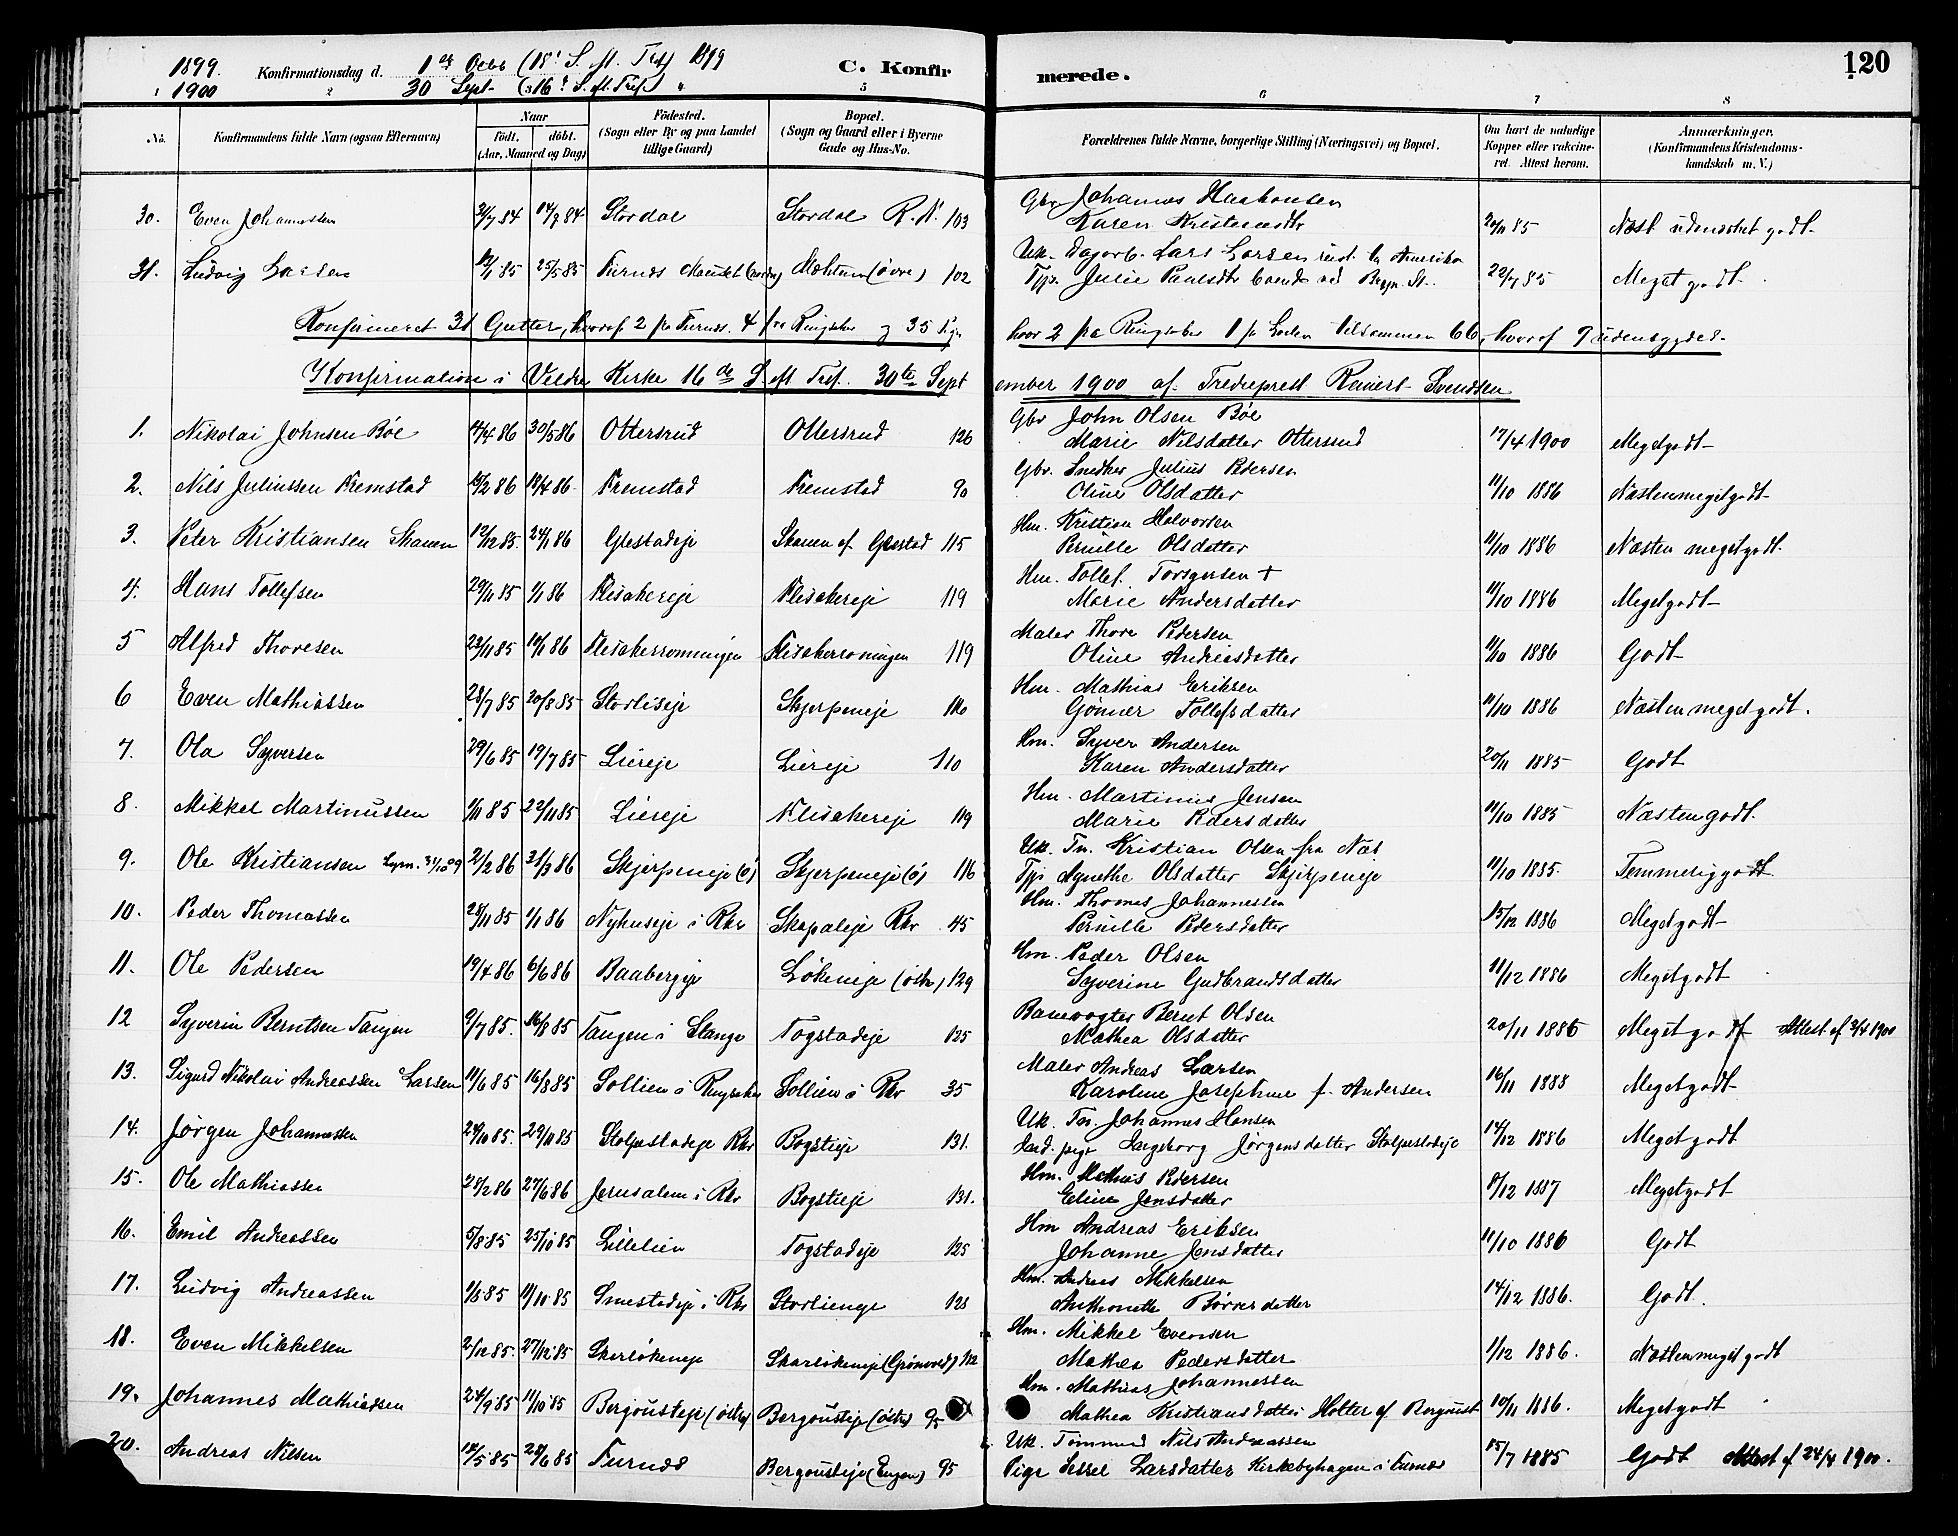 1899. Konfirmationsdag d. 1 Octb (18 S. eft. Tref) 1899 C. Konfirmerede. 120
1900 30 Sept (16 S. eft. Tref.) "
2 3 5 6 7 8
No. Konfirmandens fulde Navn (ogsaa Efternavn) Naar født. døbt. (Aar, Maaned og Dag) Fødested. (Sogn eller By og paa Landet tillige Gaard) Bopæl. (Sogn og Gaard eller i Byerne Gade og Hus-No. Forældrenes fulde Navne, borgerlige Stilling (Næringsvei) og Bopæl. Om havt de naturlige Kopper eller vakcineret. Attest herom. Anmærkninger. (Konfirmandens Kristendomskundskab m. V.)
30. Even Johannessen 84 84 Stordal Stordal R. N. 103 Gbr Johannes Haakonsen
Karen Kristensdtr 20/11 85 Næst udmærket godt
31. Ludvig Larsen 85 25/5 85 Furnes Mæhlum (övre) 102 Uk. Dagarb. Lars Larsen Amerika
Tjp. Julie Paulsdtr 85 Meget godt
Konfirmeret 31 Gutter, hvoraf 2 fra Furnes. 4 fra Ringsaker og 35 hvor 2 fra Ringsaker 1 fra tilsammen 66, hvoraf
Konfirmation i Veldre Kirke 16de S. eft Tref. 30te September 1900 af Svendsen
1. Nikolai Johnsen Böe 86 30/5 86 Ottersrud Ottersrud 126 Gbr John Olsen Böe
Marie Nilsdatter Ottersrud 17/4 1900 Meget godt
2. Nils Juliussen Fremstad 86 86 Fremstad Fremstad 90 Gbr. Snedker Julius Pedersen
Oline Olsdatter 11/10 1886 Næsten meget godt
3. Peter Kristiansen Skauen 12/12 85 24/1 86 Glestadeje Skauen af Glestad 115 Hm. Kristian Halvorsen
Pernille Olsdatter 11/10 1886 Næsten meget godt.
4. Hans Tollefsen 29/11 85 1/1 86 Flisakereje Flisakereje 119 Hm. Tollef Torgersen +
Marie Andersdatter 11/10 1886 Meget godt
5 Alfred Thoresen 22/11 85 86 Flisakerromningen Flisakerroningen 119 Maler Thore Pedersen
Oline Andreasdatter 11/10 1886 Godt
6 Even Mathiassen 28/7 85 20/8 85 Storliseje Skjerpeneje 116 Hm. Mathias Eriksen
Gönner Tollefsdatter 11/10 1886 Næsten meget godt.
7. Ola Syversen 29/6 85 19/7 85 Liereje Liereje 110 Hm. Syver Andersen
Karen Andersdatter 20/11 1885 Godt
8. Mikkel Martinussen 1/11 85 22/11 85 Liereje Flisakereje 119 Hm. Martinus Jensen
Marie Pedersdatter 11/10 1885 Næsten godt.
9. Ole Kristiansen 2/2 86 31/3 86 Skjerpeneje (ö) Skjerpeneje (ö) 116 Uk. Tn. Kristian Olsen fra Næs
Tjp Agnethe Olsdatter Skjerpeneje 11/10 1885. Temmelig godt
10. Peder Thomassen 28/11 85 1/1 86 Nyhuseje i Rkr Skapaleje Rkr 45 Hm. Thomas Johannessen
Pernille Pedersdatter 15/12 1886 Meget godt
11. Ole Pedersen 19/4 86 6/6 86 Baabergeje Lökeneje (östre) 129 Hm. Peder Olsen
Syverine Gudbrandsdatter 11/12 1886 Meget godt
12 Syverin Berntsen Tangen 9/7 85. 16/8 85 Tangen i Stange Togstadeje 125 Banevogter Bernt Olsen
Mathea Olsdatter 20/11 1886 Meget godt Attest af 1900
13. Sigurd Nikolai Andreassen Larsen 11/6 85 16/8 85 Sollien i Ringsaker Sollien i Rkr 35 Maler Andreas Larsen
Karoline Josephine f. Andersen 16/11 1888 Meget godt
14. Jørgen Johannessen 29/10 85. 29/11 85 Stolpestadeje Rkr Bogstieje 131. Uk. Tn. Johannes Hansen
pige Ingeborg Jørgensdatter Stolpestadeje 14/12 1886 Meget godt
15. Ole Mathiassen 28/2 86 27/6 86 Jerusalem i Rkr Bogstieje 131. Hm. Mathias Pedersen
Eline Jensdatter 8/12 1887 Meget godt
16. Emil Andreassen 5/8 85 25/10 85 Lillelien Togstadeje 125 Hm Andreas Eriksen
Johanne Jensdatter 11/10 1886 Godt
17. Ludvig Andreassen 85 11/10 85 Smestadeje i Rkr Storlienge 128 Hm. Andreas Mikkelsen
Anthonette Börresdatter 14/12 1886. Godt.
18. Even Mikkelsen 2/12 85. 27/12 85 Skarlökeneje Skarlökeneje (Grönvold) 112 Hm. Mikkel Evensen
Mathea Pedersdatter 1/12 1886. Næsten meget godt
19. Johannes Mathiassen 24/9 85 11/10 85 Bergousteje (östre) Bergousteje (östre) 95 Hm. Mathias Johannessen
Mathea Kristiansdatter Holter af Bergoust 10/11 1886. Meget godt
20. Andreas Nilsen 85 85 Furnes Bergousteje (Engen) 95 Uk. Tømmerm Nils Andreassen
Pige Sessel Larsdatter Kirkebyhagen i Furnes 15/7 1885 Godt Attest af 24/4 1900.